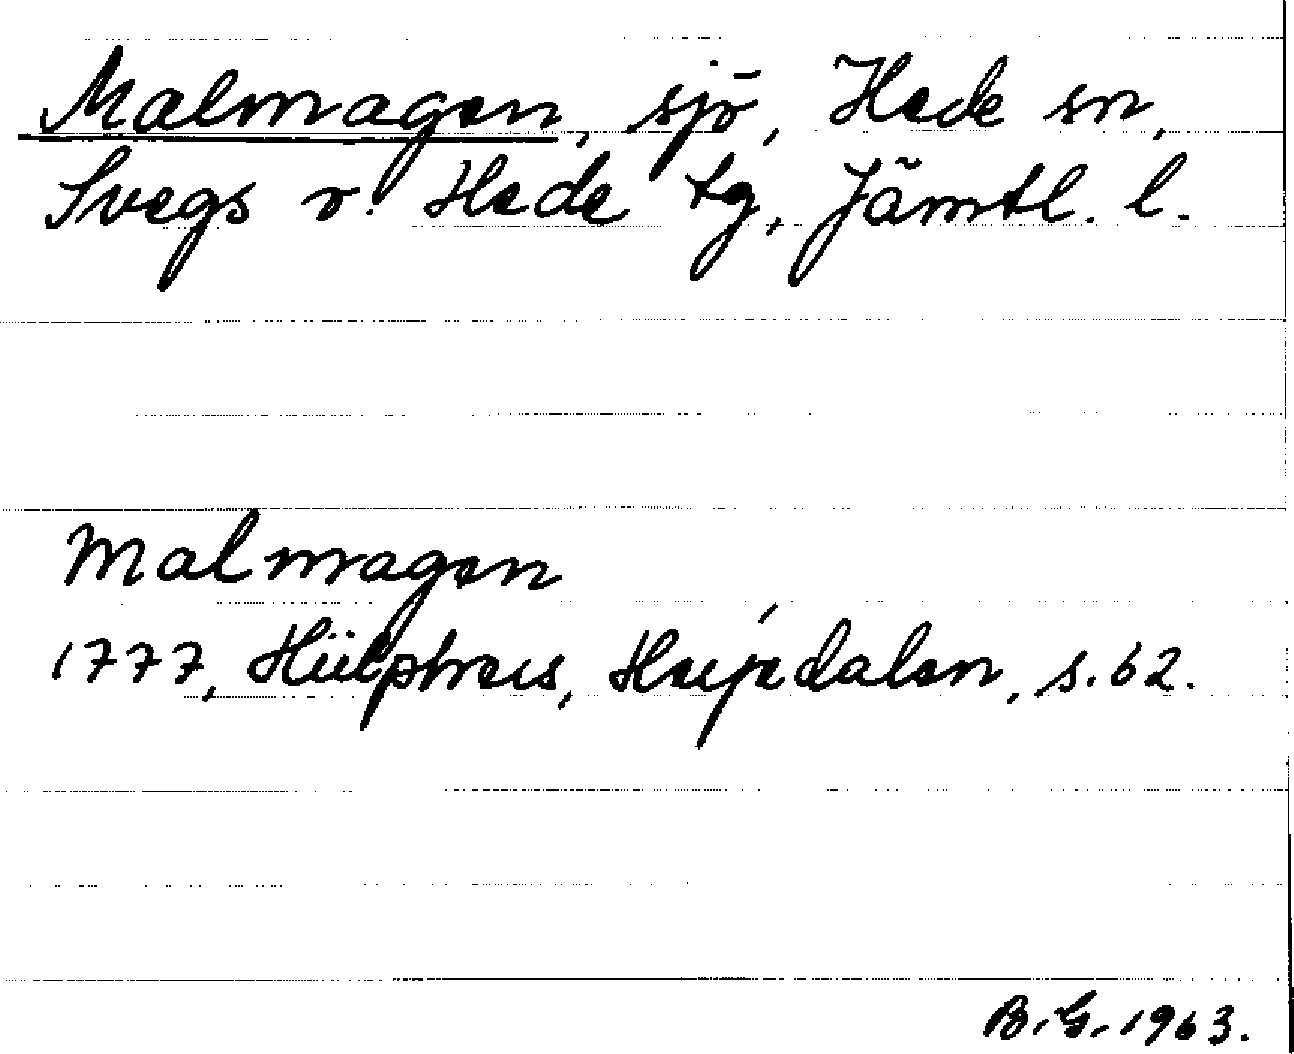 Malmagen, sjö, Hede sn,
Svegs o. Hede tg, Jämtl. l.
Malmagen
1777, Hülphers, Herjedalen, s. 62.
B. G. 1963.